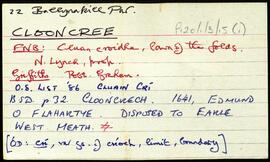 22 Ballynakill Par.
P120/1/3/15(i)
CLOONCREE
FNB: Cluain croidhe, lawn of the folds.
N. Lynch, prop.
Griffith: Robt. Graham.
O.S. LIST '86 CLUAIN CRÍ
BSD p 32 CLOONCREECH. 1641, EDMUND
O FLAHARTYE. DISPOSED TO EARLE
WEST MEATH.
[ÓD: crí, críoch, limit, boundary]